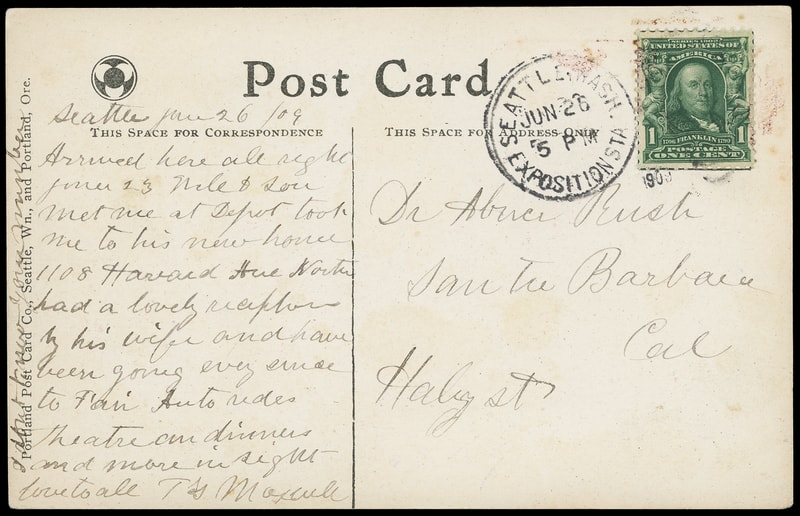 Post Card
THIS SPACE FOR CORRESPONDENCE
THIS SPACE FOR ADDRESS ONLY
Portland Post Card Co., Seattle, Wn., and Portland, Ore.
Seattle June 26/09
Arrived here all right
June 23 Nile & Son
met me at Depot took
me to his new home
1108 Harvard Ave North
had a lovely reception
by his wife and have
been going ever since
to Fair Auto rides
theatre an dinners
and more in sight
love to all T G Maxwell
I dont know your number
SEATTLE, WASH.
JUN 26
5 PM
EXPOSITION STA
1909
SERIES 1902
UNITED STATES OF
AMERICA
1 1
1706 FRANKLIN 1790
POSTAGE
ONE CENT
Dr Abner Rush
Santa Barbara
Cal
Haley st